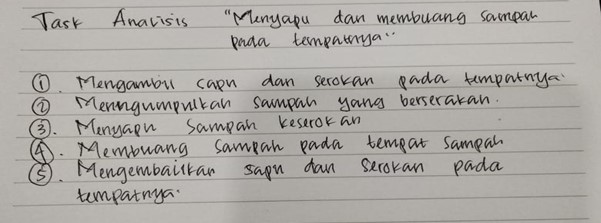 Task Analisis "Menyapu dan membuang sampah
pada tempatnya"
1. Mengambil sapu dan serokan pada tempatnya.
2. Menngumpulkan sampah yang berserakan.
3. Menyapu sampah keserokan
4. Membuang sampah pada tempat sampah
5. Mengembalikan sapu dan serokan pada
tempatnya.